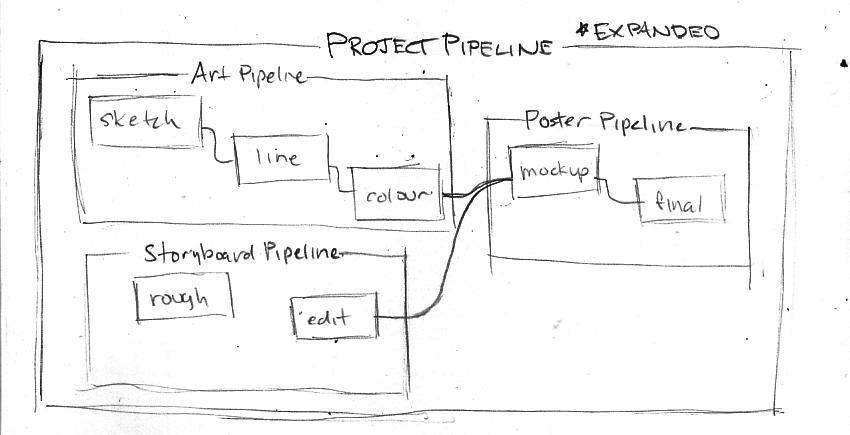 PROJECT PIPELINE *EXPANDED
Art Pipeline
sketch
line
colour
Poster Pipeline
mockup
final
Storyboard Pipeline
rough
edit